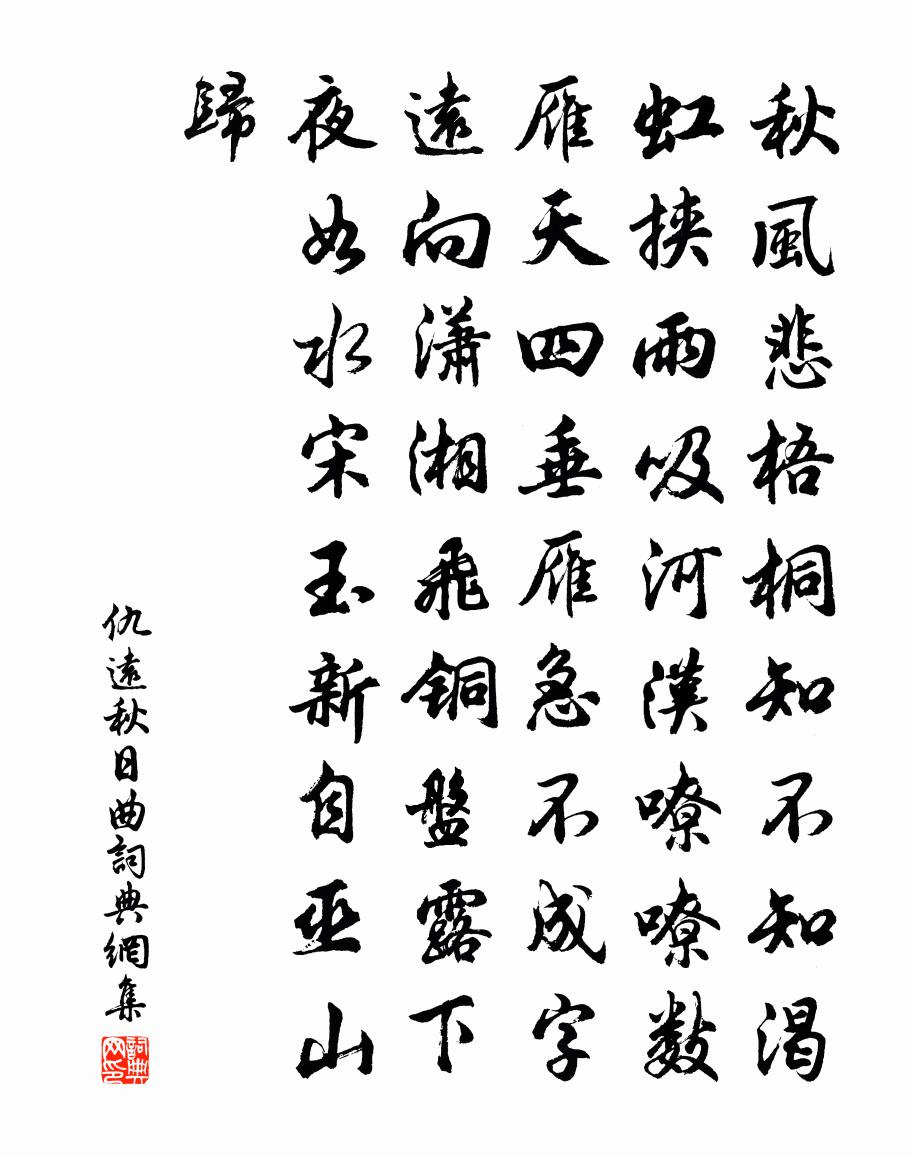 秋風悲梧桐知不知渴
虹挾雨吸河漢嘹嘹數
雁天四垂雁急不成字
遠向瀟湘飛銅盤露下
夜如水宋玉新自巫山
歸
仇遠秋日曲詞典網集
詞典网印